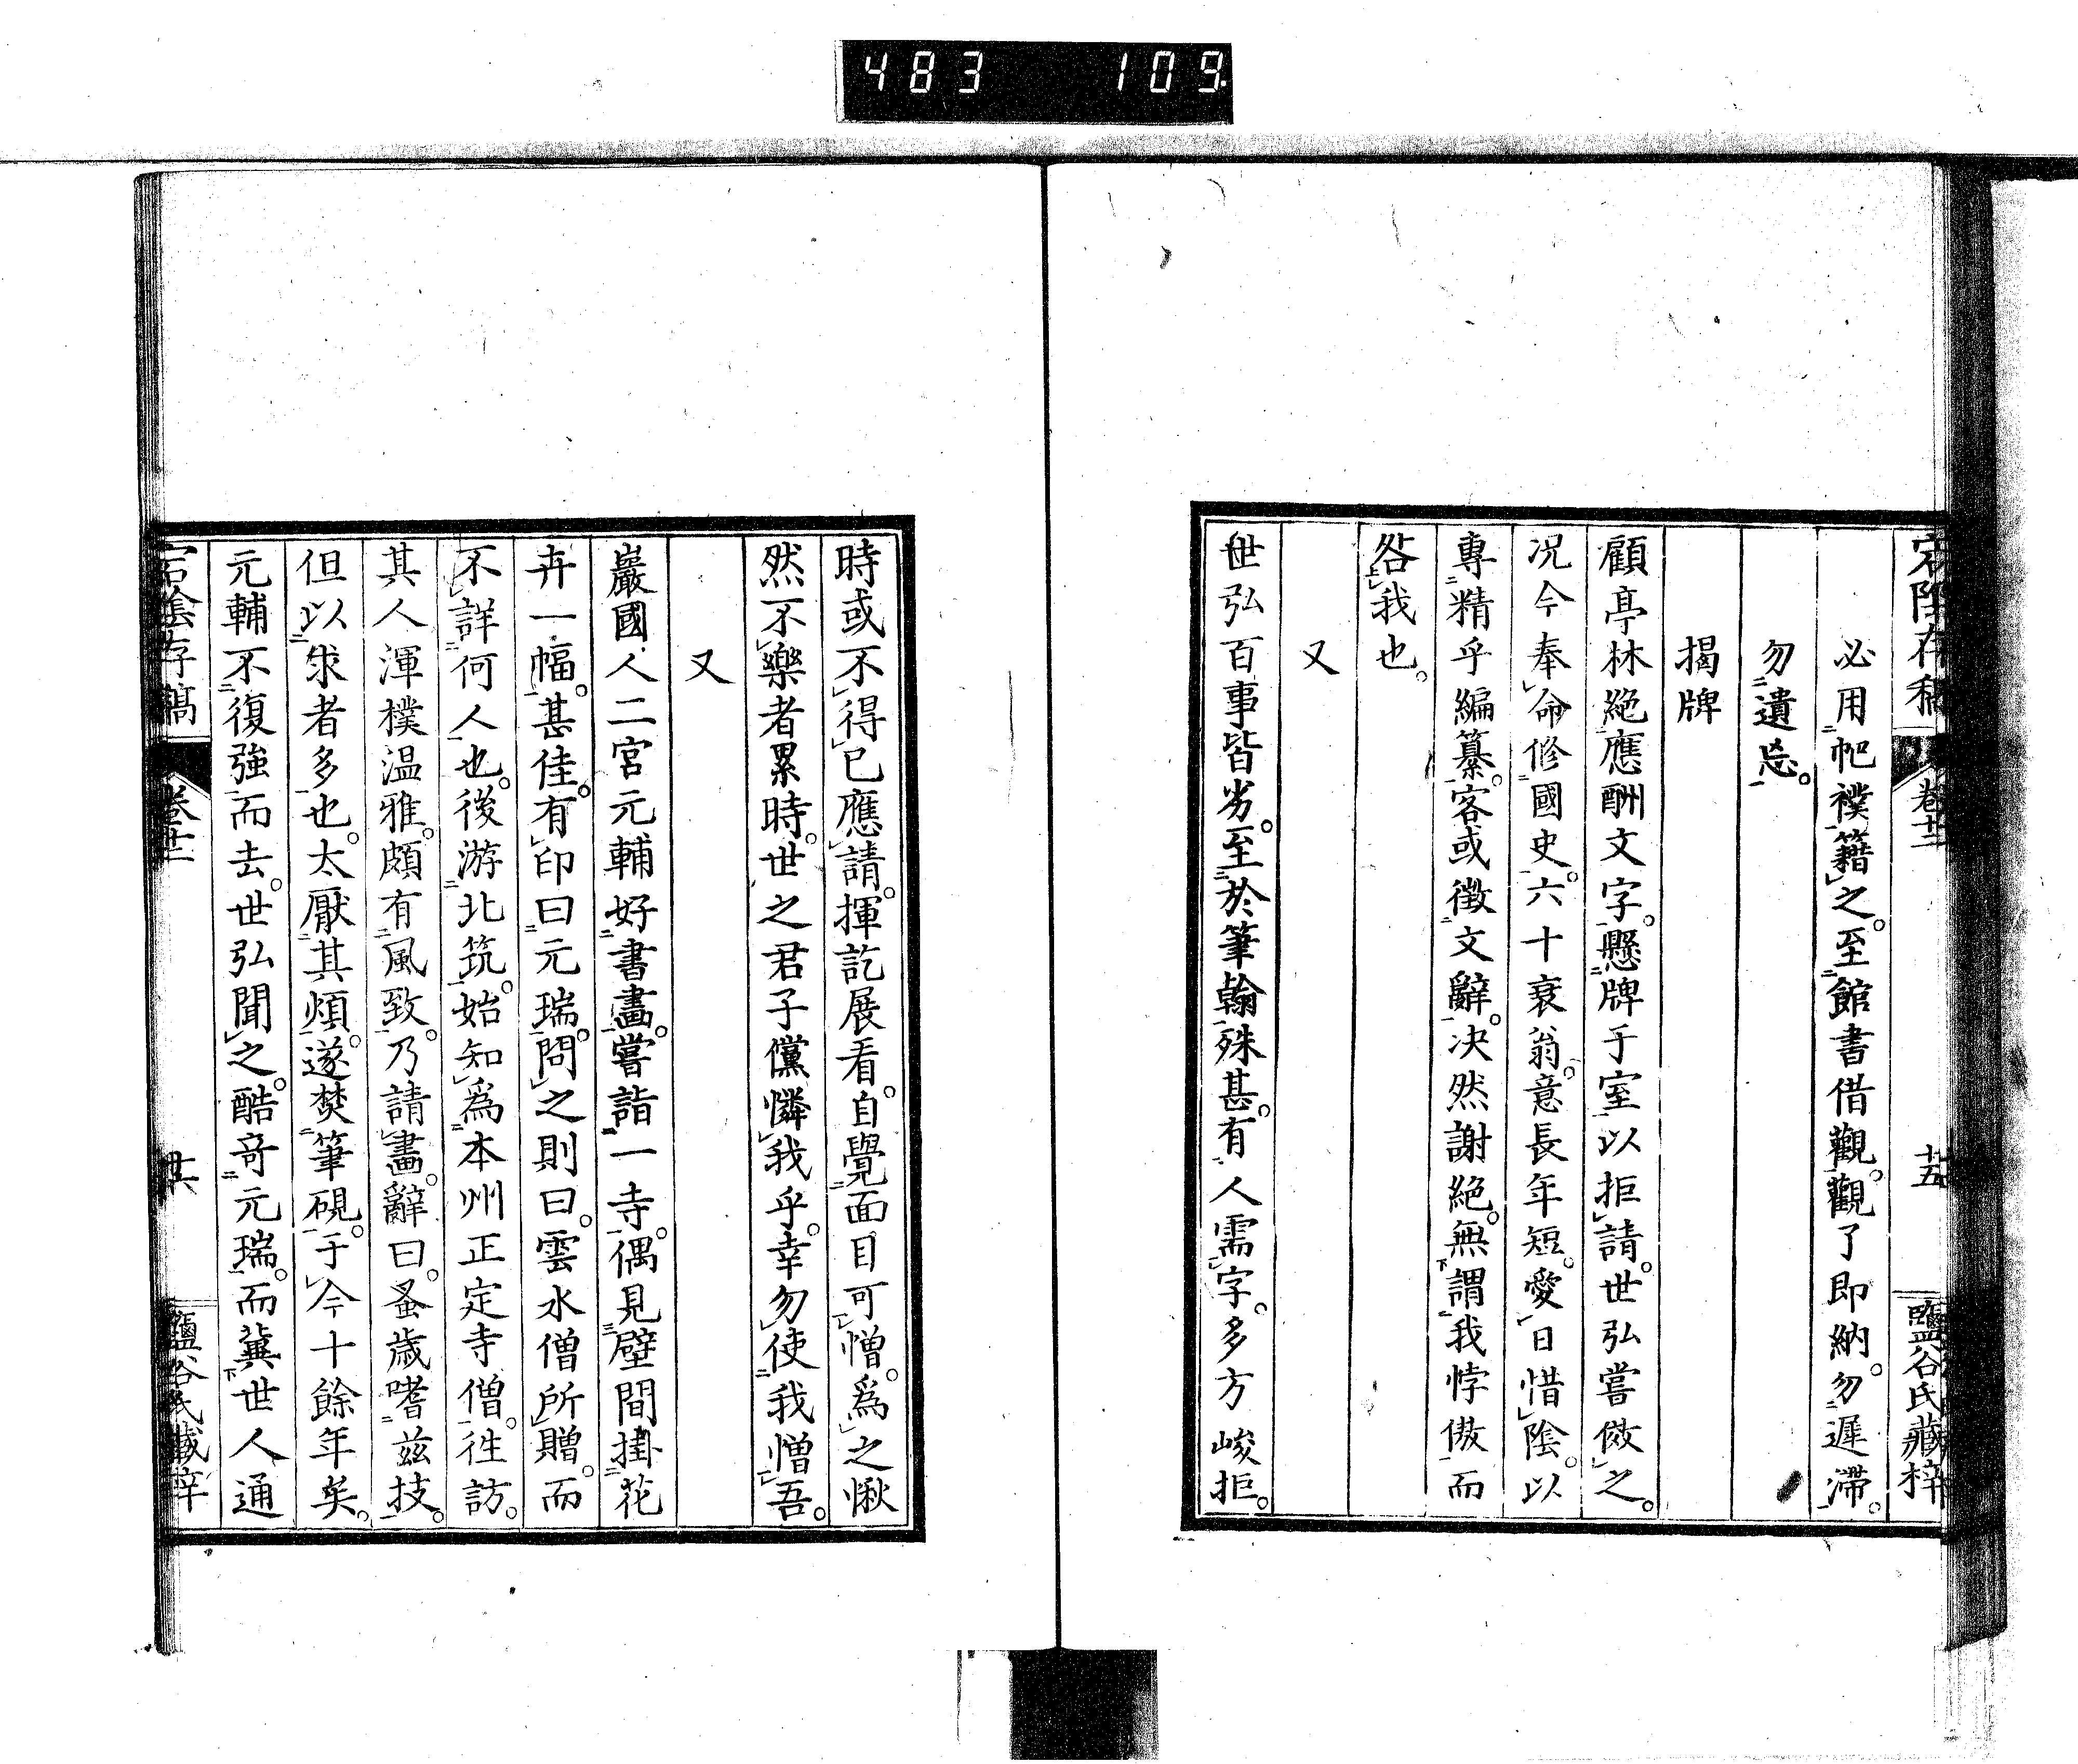 483 109
宕陰存稿 卷十二 十五 鹽谷氏藏梓
必用帊襆籍之。至館書借觀。觀了即納。勿遲滯。
勿遺忘。
揭牌
顧亭林絕應酬文字。懸牌于室以拒請。世弘嘗倣之。
况今奉命修國史。六十衰翁。意長年短。愛日惜陰。以
專精乎編纂。客或徵文辭。决然謝絕。無謂我悖傲而
咎我也。
又
世弘百事皆劣。至於筆翰殊甚。有人需字。多方峻拒。
時或不得已應請。揮訖展看。自覺面目可憎。爲之愀
然不樂者累時。世之君子儻憐我乎。幸勿使我憎吾。
又
巖國人二宮元輔好書畫。嘗詣一寺。偶見壁間掛花
卉一幅。甚佳。有印曰元瑞。問之則曰。雲水僧所贈。而
不詳何人也。後游北筑。始知爲本州正定寺僧。往訪。
其人渾樸温雅。頗有風致。乃請畫。辭曰。蚤歲嗜茲技。
但以求者多也。太厭其煩。遂焚筆硯。于今十餘年矣。
元輔不復強而去。世弘聞之。酷奇元瑞。而冀世人通
宕陰存稿 卷十二 十六 鹽谷氏藏梓